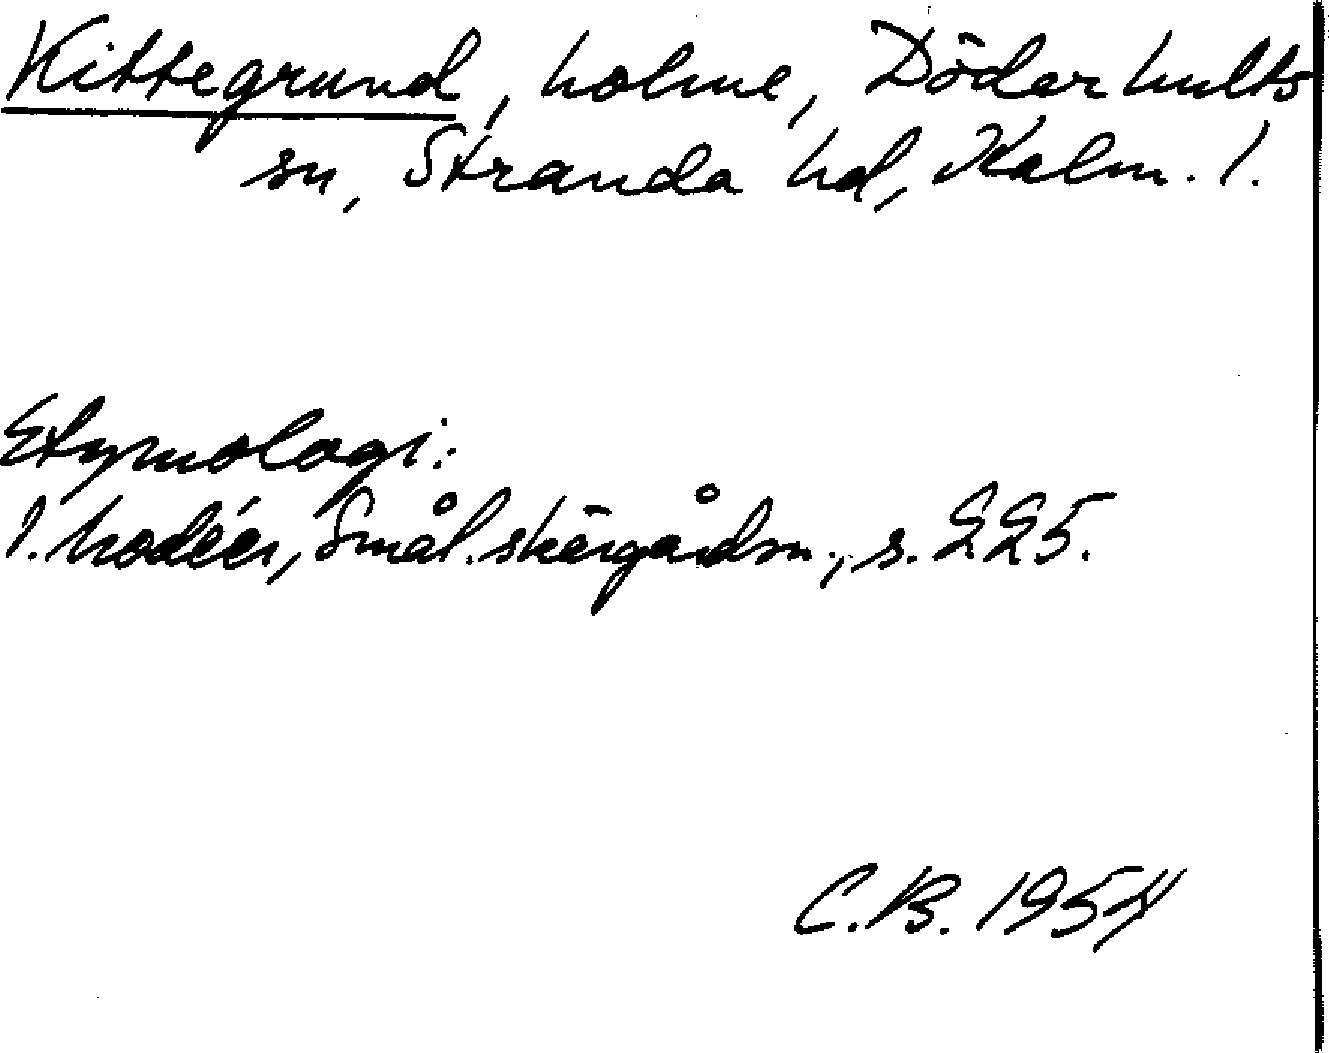 Kittegrund, holme, Döderhults
sn, Stranda hd, Kalm. l.
Etymologi:
I. Modéer, Smål. skärgårdsn., s. 225.
C.B. 1954